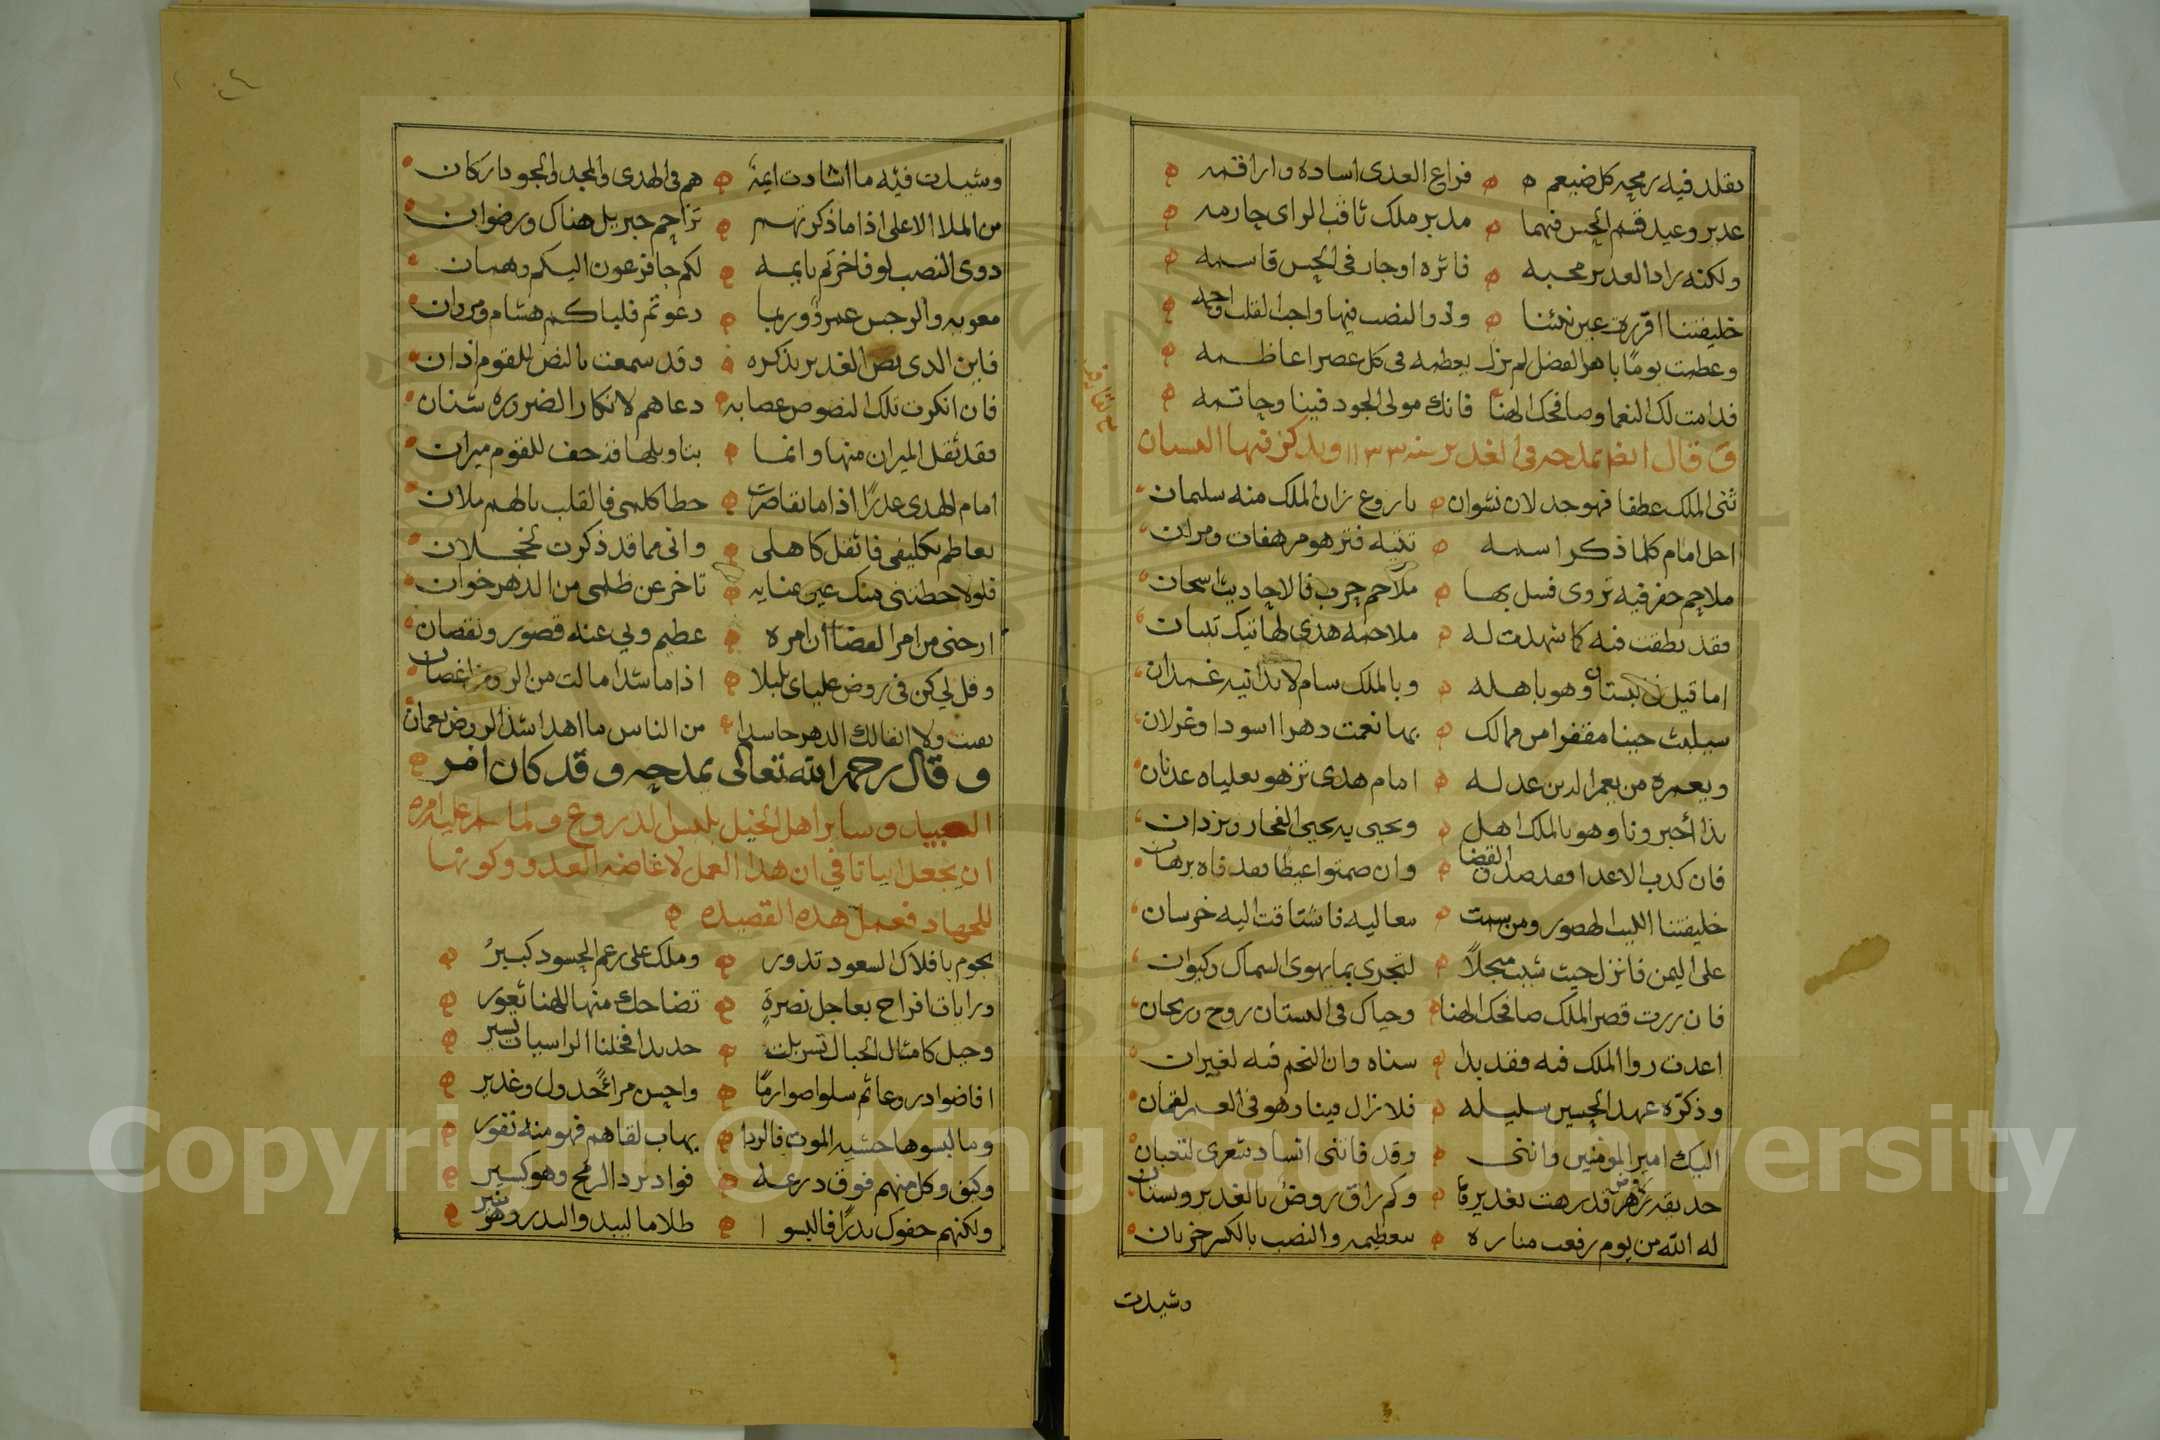 يقلد فيه رمحه كل ضيغم ه فراع العدى اساده واراقمه
غدير وعيد قسم الحسن فيهما مدبر ملك ثاقب الراى حازمه
ولكنه زاد الغدير محبه فائره اوجار في الحسن قاسمه
خليفتنا اقررت عين نبينا وذو النصب فيها واجل القلب واجمه
وعظمت يوما باهر الفضل لم يزل يعظمه في كل عصر اعاظمه
فدامت لك النعما وصافحك الهنا فانك مولى الجود فينا وحاتمه
وقال ايضا يمدحه في الغدير سنه ١١٣٣ ويذكر فيها البستان
ثنى الملك عطفا فهو جدلان نشوان باروع زان الملك منه سليمان
اجل امام كلما ذكر اسمه تثنيه فتزهو مرهفات ومران
ملاحم جفر فيه تروى فسل بها ملاحم حرب فالاحاديث اسحان
فقد نطقت فيه كما شهدت له ملاحمه هدي لهاتيك تبيان
اما قيل بستان وهو باهله وبالملك سام لا يدانيه غمدان
سيلبث حينا مقفرا من ممالك بها نعمت دهرا اسود وغزلان
ويعمره من يعمر الدين عدله امام هدى تزهو بعلياه عدنان
بذا أخبرونا وهو بالملك اهل ويحيى به يحيى الفخار ويزدان
فان كدب الاعدا فقد صدق القضا وان صمتوا غيظا فقد فاه برهان
خليفتنا الليث الهصور ومن سمت معاليه فاشتاقت اليه خرسان
على اليمن فانزل حيث شئت مبجلاً لتجري بما يهوى السماك وكيوان
فان زرت قصر الملك صافحك الهنا وحياك في البستان روح وريحان
اعدت روا الملك فيه وفقد بدا سناه وان النجم فيه لغيران
وذكره عهد الحسين سليله فلا زال فينا وهو في العمر لقمان
اليك امير المومنين وانني وقد فاتني انساد شعري لتعبان
حديقه زهر قد زهت بغديرها وكم راق روض بالغدير وبستان
له الله من يوم رفعت مناره بتعظيمه والنصب بالكسر خزيان
وشيدت
وشيدت فيه ما اشادت ايمة هم في الهدى والمجد والجود اركان
من الملا الاعلى اذا ما ذكرتهم تزاحم جبريل هناك ورضوان
ذوى النصب لو فاخرتم بايمه لكم جا فرعون اليكم وهمان
معويه والرجس عمرو وربما دعوتم فلباكم هشام ومروان
فاين الذى نص الغدير بذكره وقد سمعت بالنص للقوم اذان
فان انكرت تلك النصوص عصابه دعاهم لانكار الضروره شنان
فقد ثقل الميزان منها وانما بتاويلها قد خف للقوم ميزان
امام الهدى عذرًا اذا ما تقاصرت خطا كلمي فالقلب بالهم ملان
تعاظم تكليفي فاثقل كاهلى واني مما قد ذكرت لخجلان
فلو لاحظتني منك عين عنايه تاخر عن ظلمي من الدهر خوان
ارحني من امر القضا ان امره عظيم ولي عنه قصور ونقصان
وقل لي كن في روض علياي بلبلا اذا ما شدا مالت من الروض اغصان
بقيت ولا انفالك الدهر حاسدا من الناس ما اهدا شذا الروض نعمان
وقال رحمه الله تعالى يمدحه وقد كان امر
العبيد وساير اهل الخيل بلبس الدروع ولما سلم عليه امره
ان يجعل ابياتا في ان هذا العمل لاغاضه العدو وكونها
للجهاد فعمل هذه القصيده
نجوم بافلاك السعود تدور وملك على رغم الحسود كبيرُ
ورايات افراح بعاجل نصرةٍ تضاحك منها للهنا ثغور
وخيل كامثال الجبال تسربلت حديدا فخلنا الراسيات تسير
افاضوا دروعا ثم سلوا صوارمًا واحسن مرائً جدول وغدير
وما لبسوها خشيه الموت فالردا يهاب لقاهم فهو منه نفور
وكيف وكل منهم فوق درعه فواد يرد الرمح وهو كسير
ولكنهم حفوك بدرًا فالبسوا ظلاما لبيد والبدر وهو منير